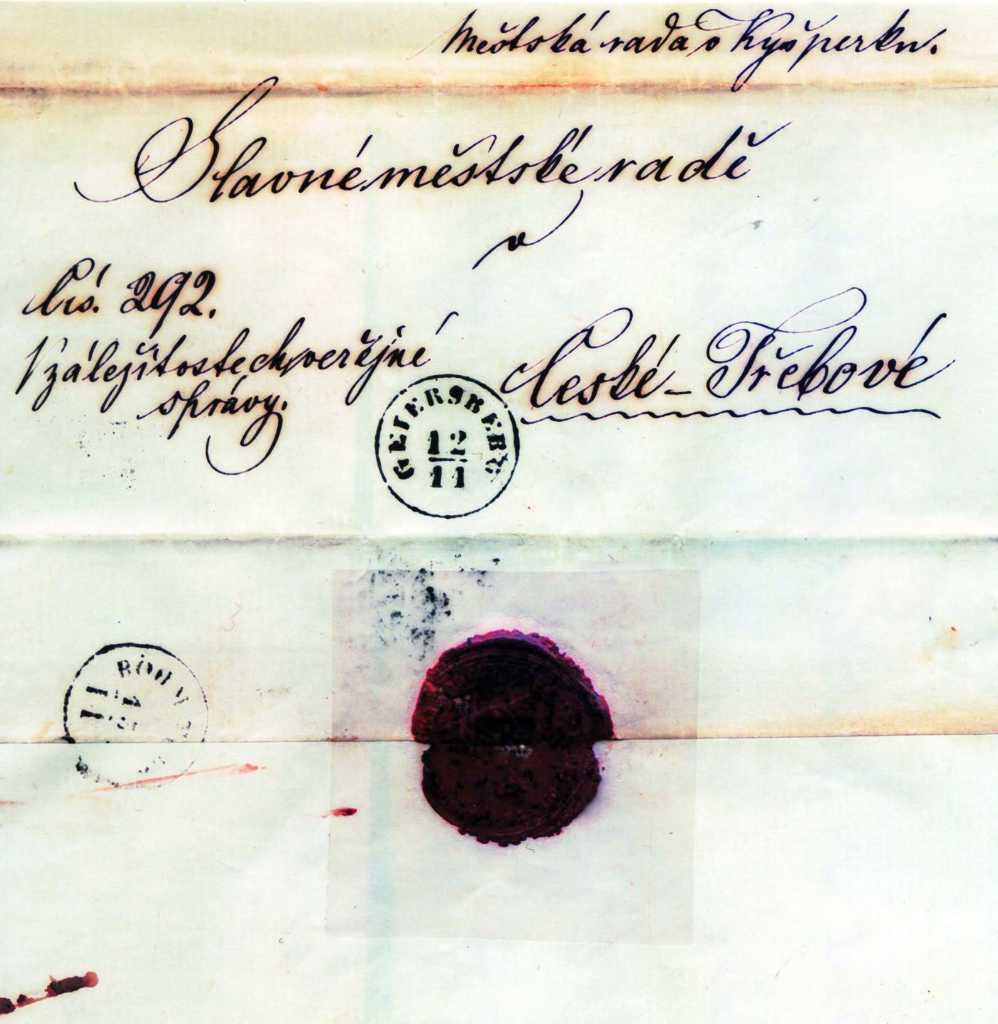 Městská rada v Kyšperku.
Slavné městské radě
v
Čís. 292.
V záležitostech veřejné
správy.
České-Třebové
GEIERSBERG
12
11
BÖHM
11